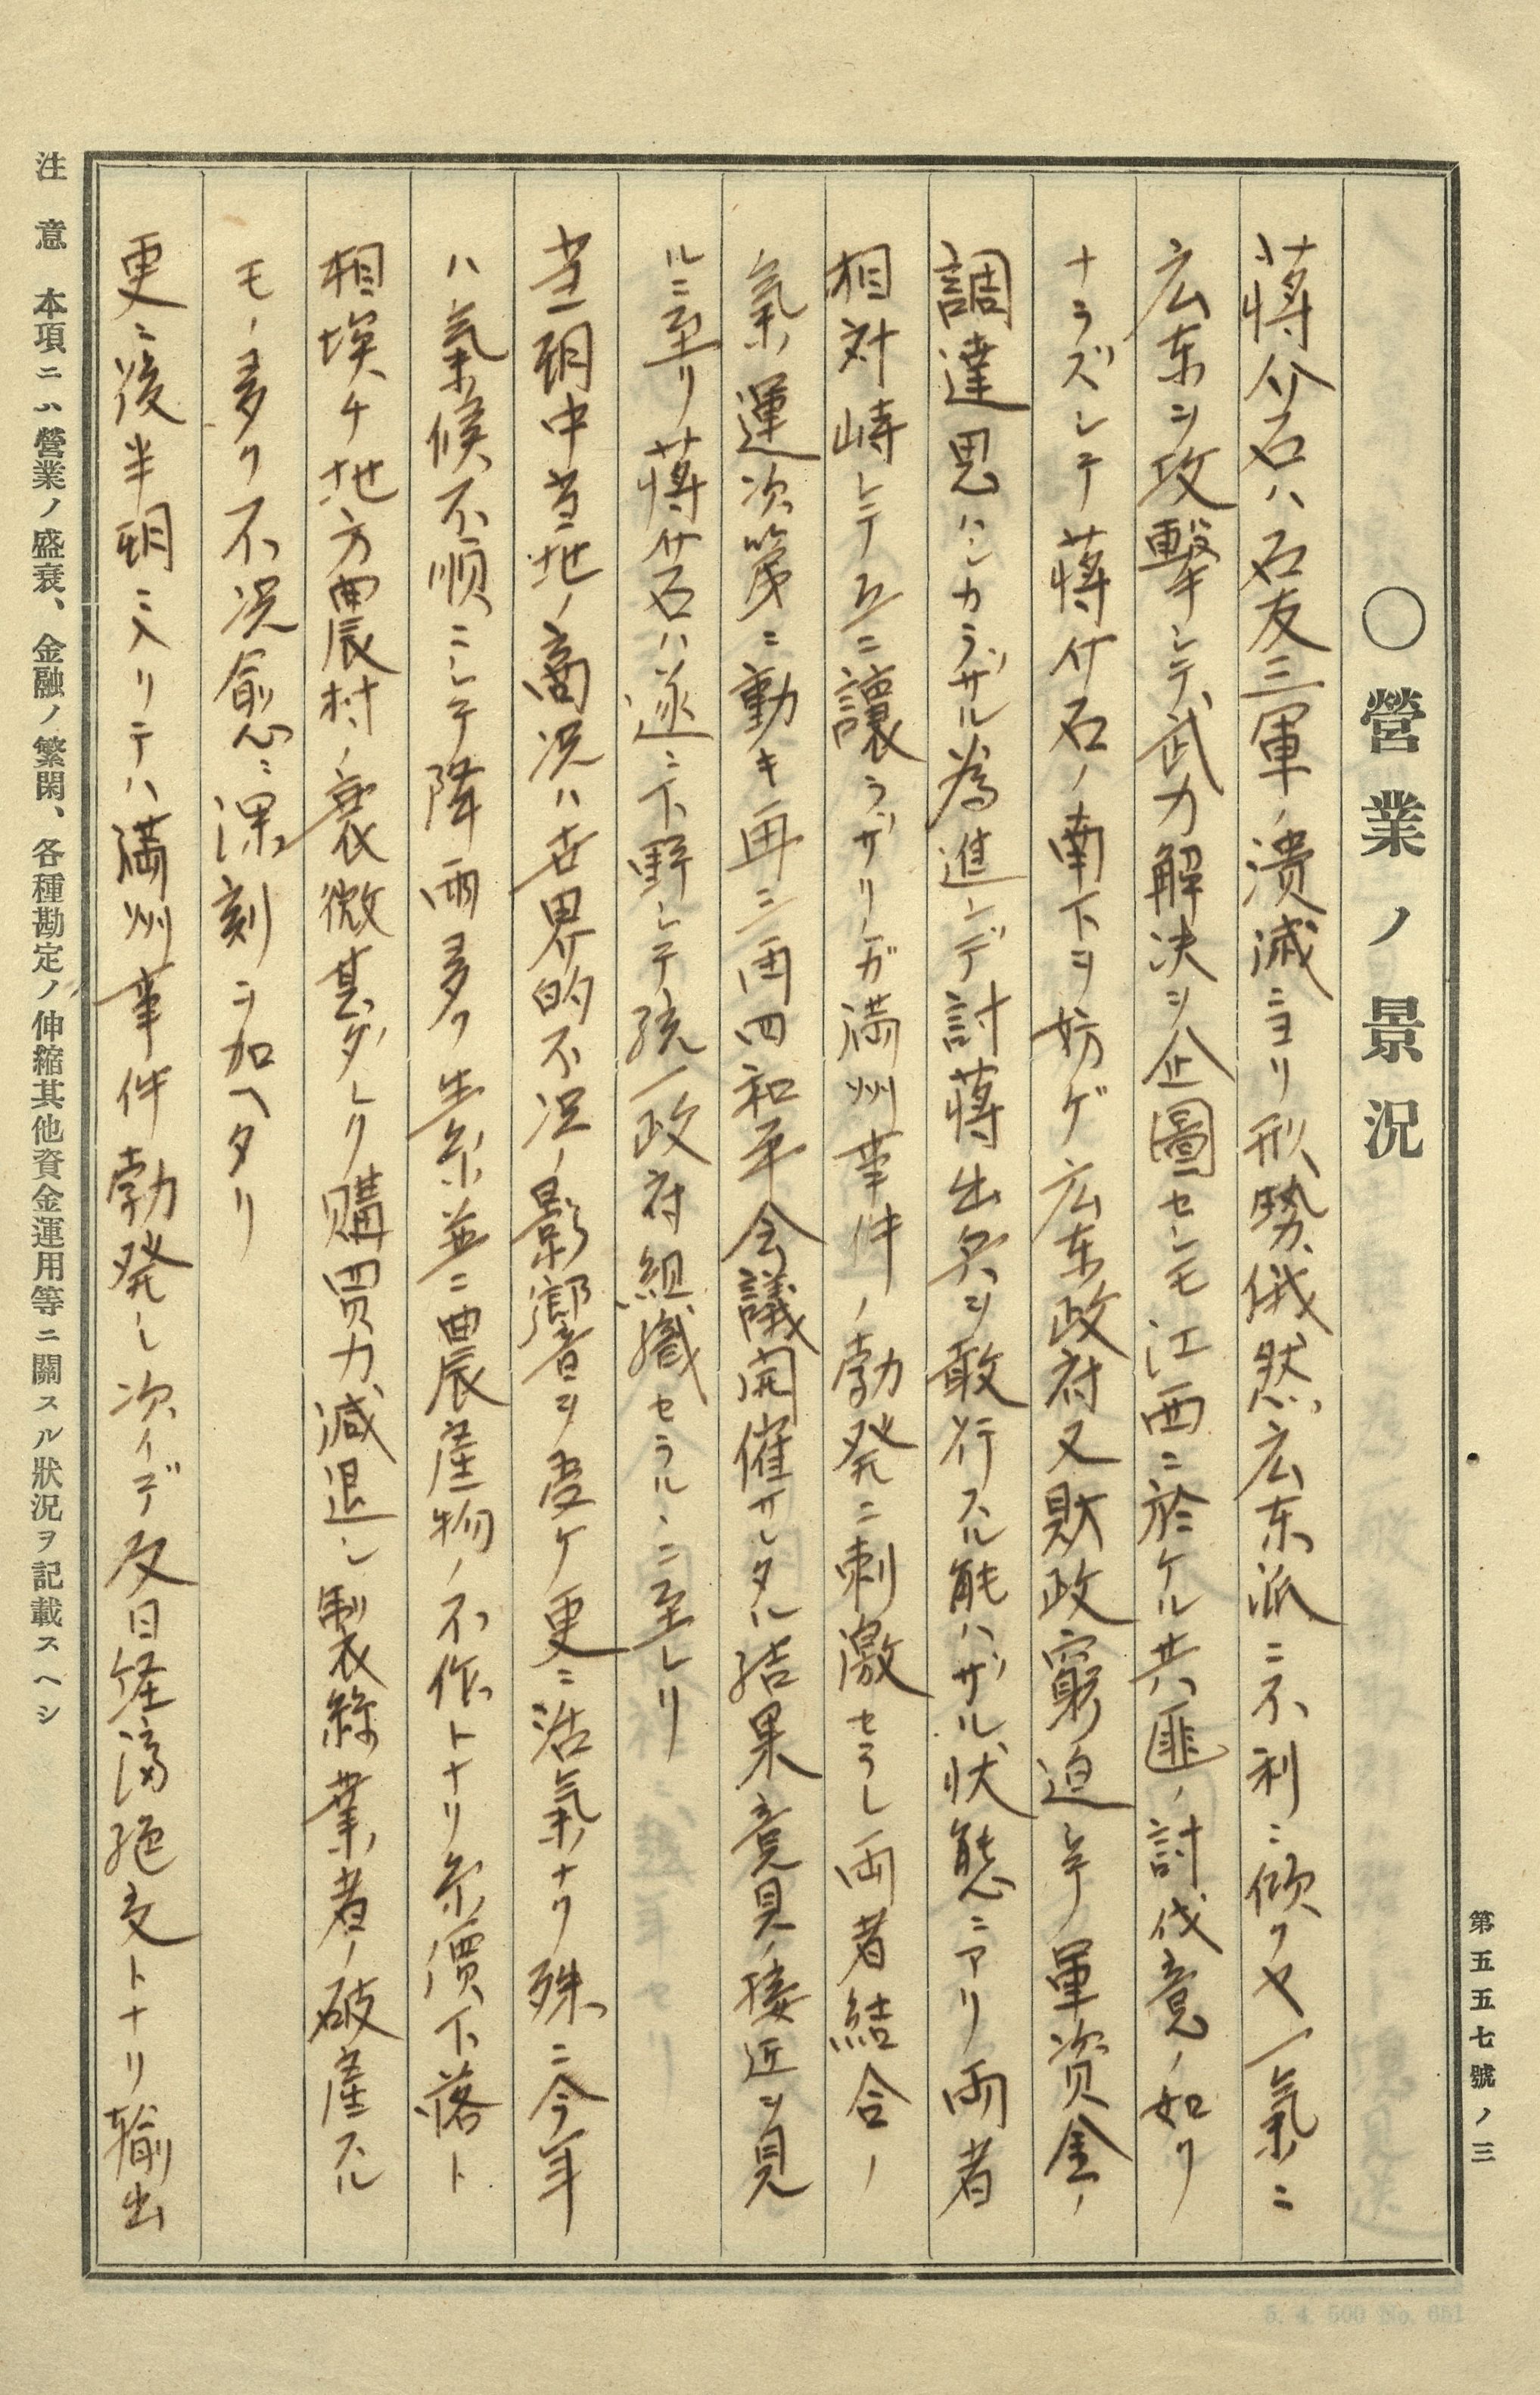 第五五七號ノ三
〇營業ノ景況
蔣介石ハ石友三軍ノ潰滅ニヨリ形勢俄然広东派ニ不利ニ傾クヤ一氣ニ
広东ヲ攻擊シテ武力解決ヲ企圖セシモ江西ニ於ケル共匪ノ討伐意ノ如ク
ナラズシテ蔣介石ノ南下ヲ妨ゲ広东政府又財政窮迫シテ軍資金ノ
調達思ハシカラザル為進ンデ討蔣出兵ヲ敢行スル能ハザル状態ニアリ両者
相対峙シテ互ニ讓ラザリシガ満州事件ノ勃発ニ刺激セラレ両者結合ノ
氣運次第ニ動キ再三再四和平会議開催サレタル結果意見ノ接近ヲ見
ルニ至リ蔣介石ハ遂ニ下野シテ統一政府組織セラルヽニ至レリ
当期中当地ノ商況ハ世界的不況ノ影響ヲ受ケ更ニ活氣ナク殊ニ今年
ハ氣候不順ニシテ降雨多ク生糸並ニ農産物ノ不作トナリ糸價下落ト
相埃チ地方農村ノ衰微甚ダシク購買力減退シ製絲業者ノ破産スル
モノ多ク不況愈々深刻ヲ加ヘタリ
更ニ後半期ニ入リテハ満州事件勃発シ次イデ反日経済絶交トナリ輸出
注意 本項ニハ營業ノ盛衰、金融ノ繁閑、各種勘定ノ伸縮其他資金運用等ニ關スル狀況ヲ記載スヘシ
5. 4. 500 No. 651